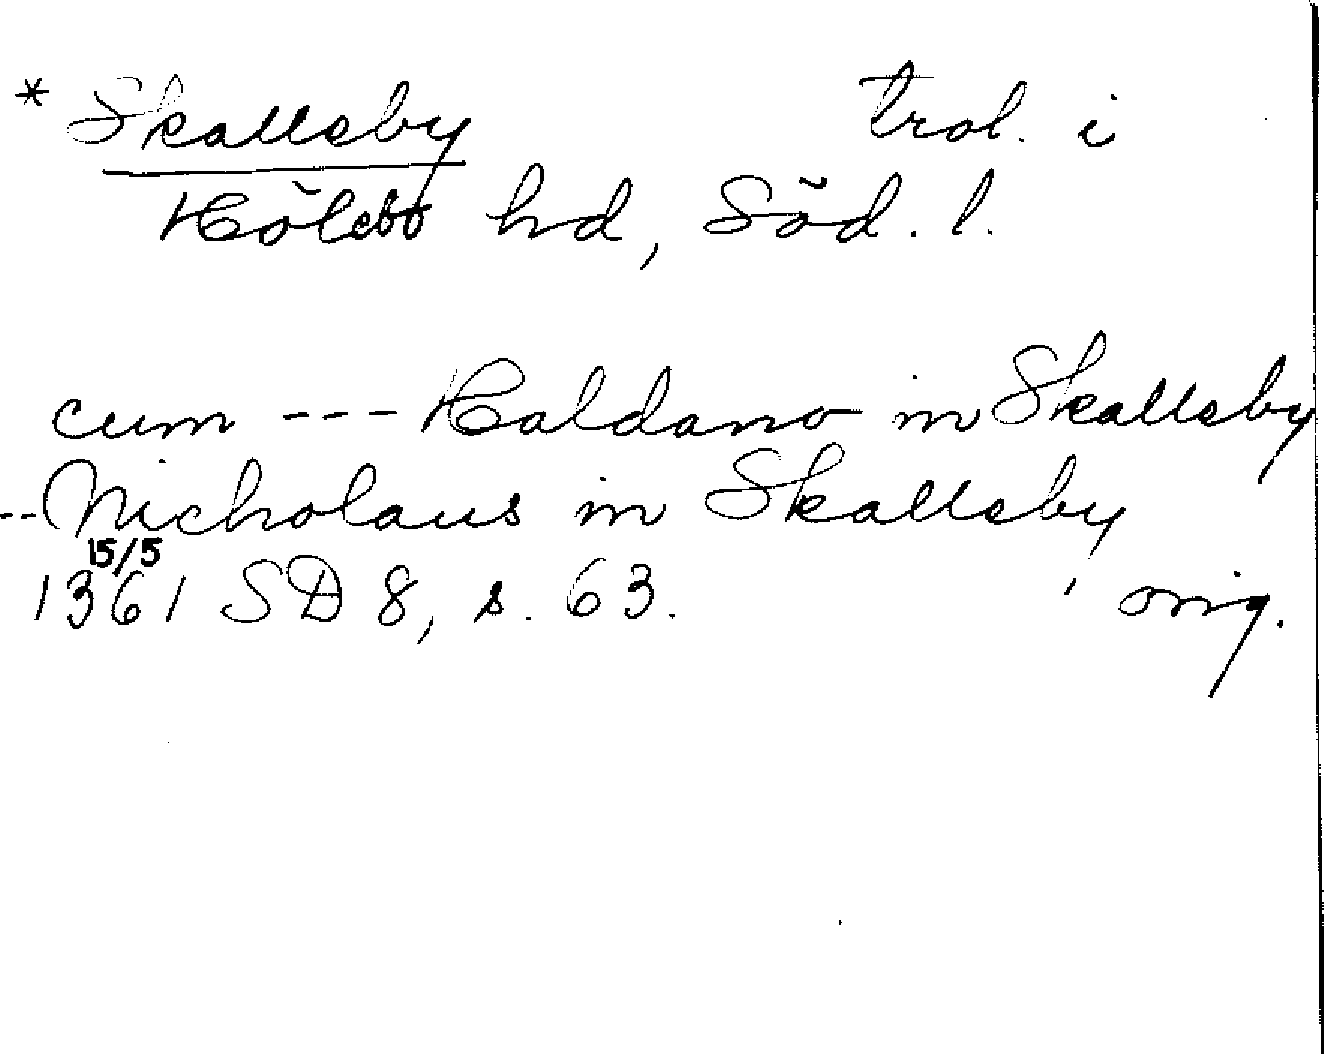 * Skallsby trol. i
Hölebo hd, Söd. l.
cum --- Haldano in Skallsby
-- Nicholaus in Skallsby
15/5
1361 SD 8, s. 63. orig.